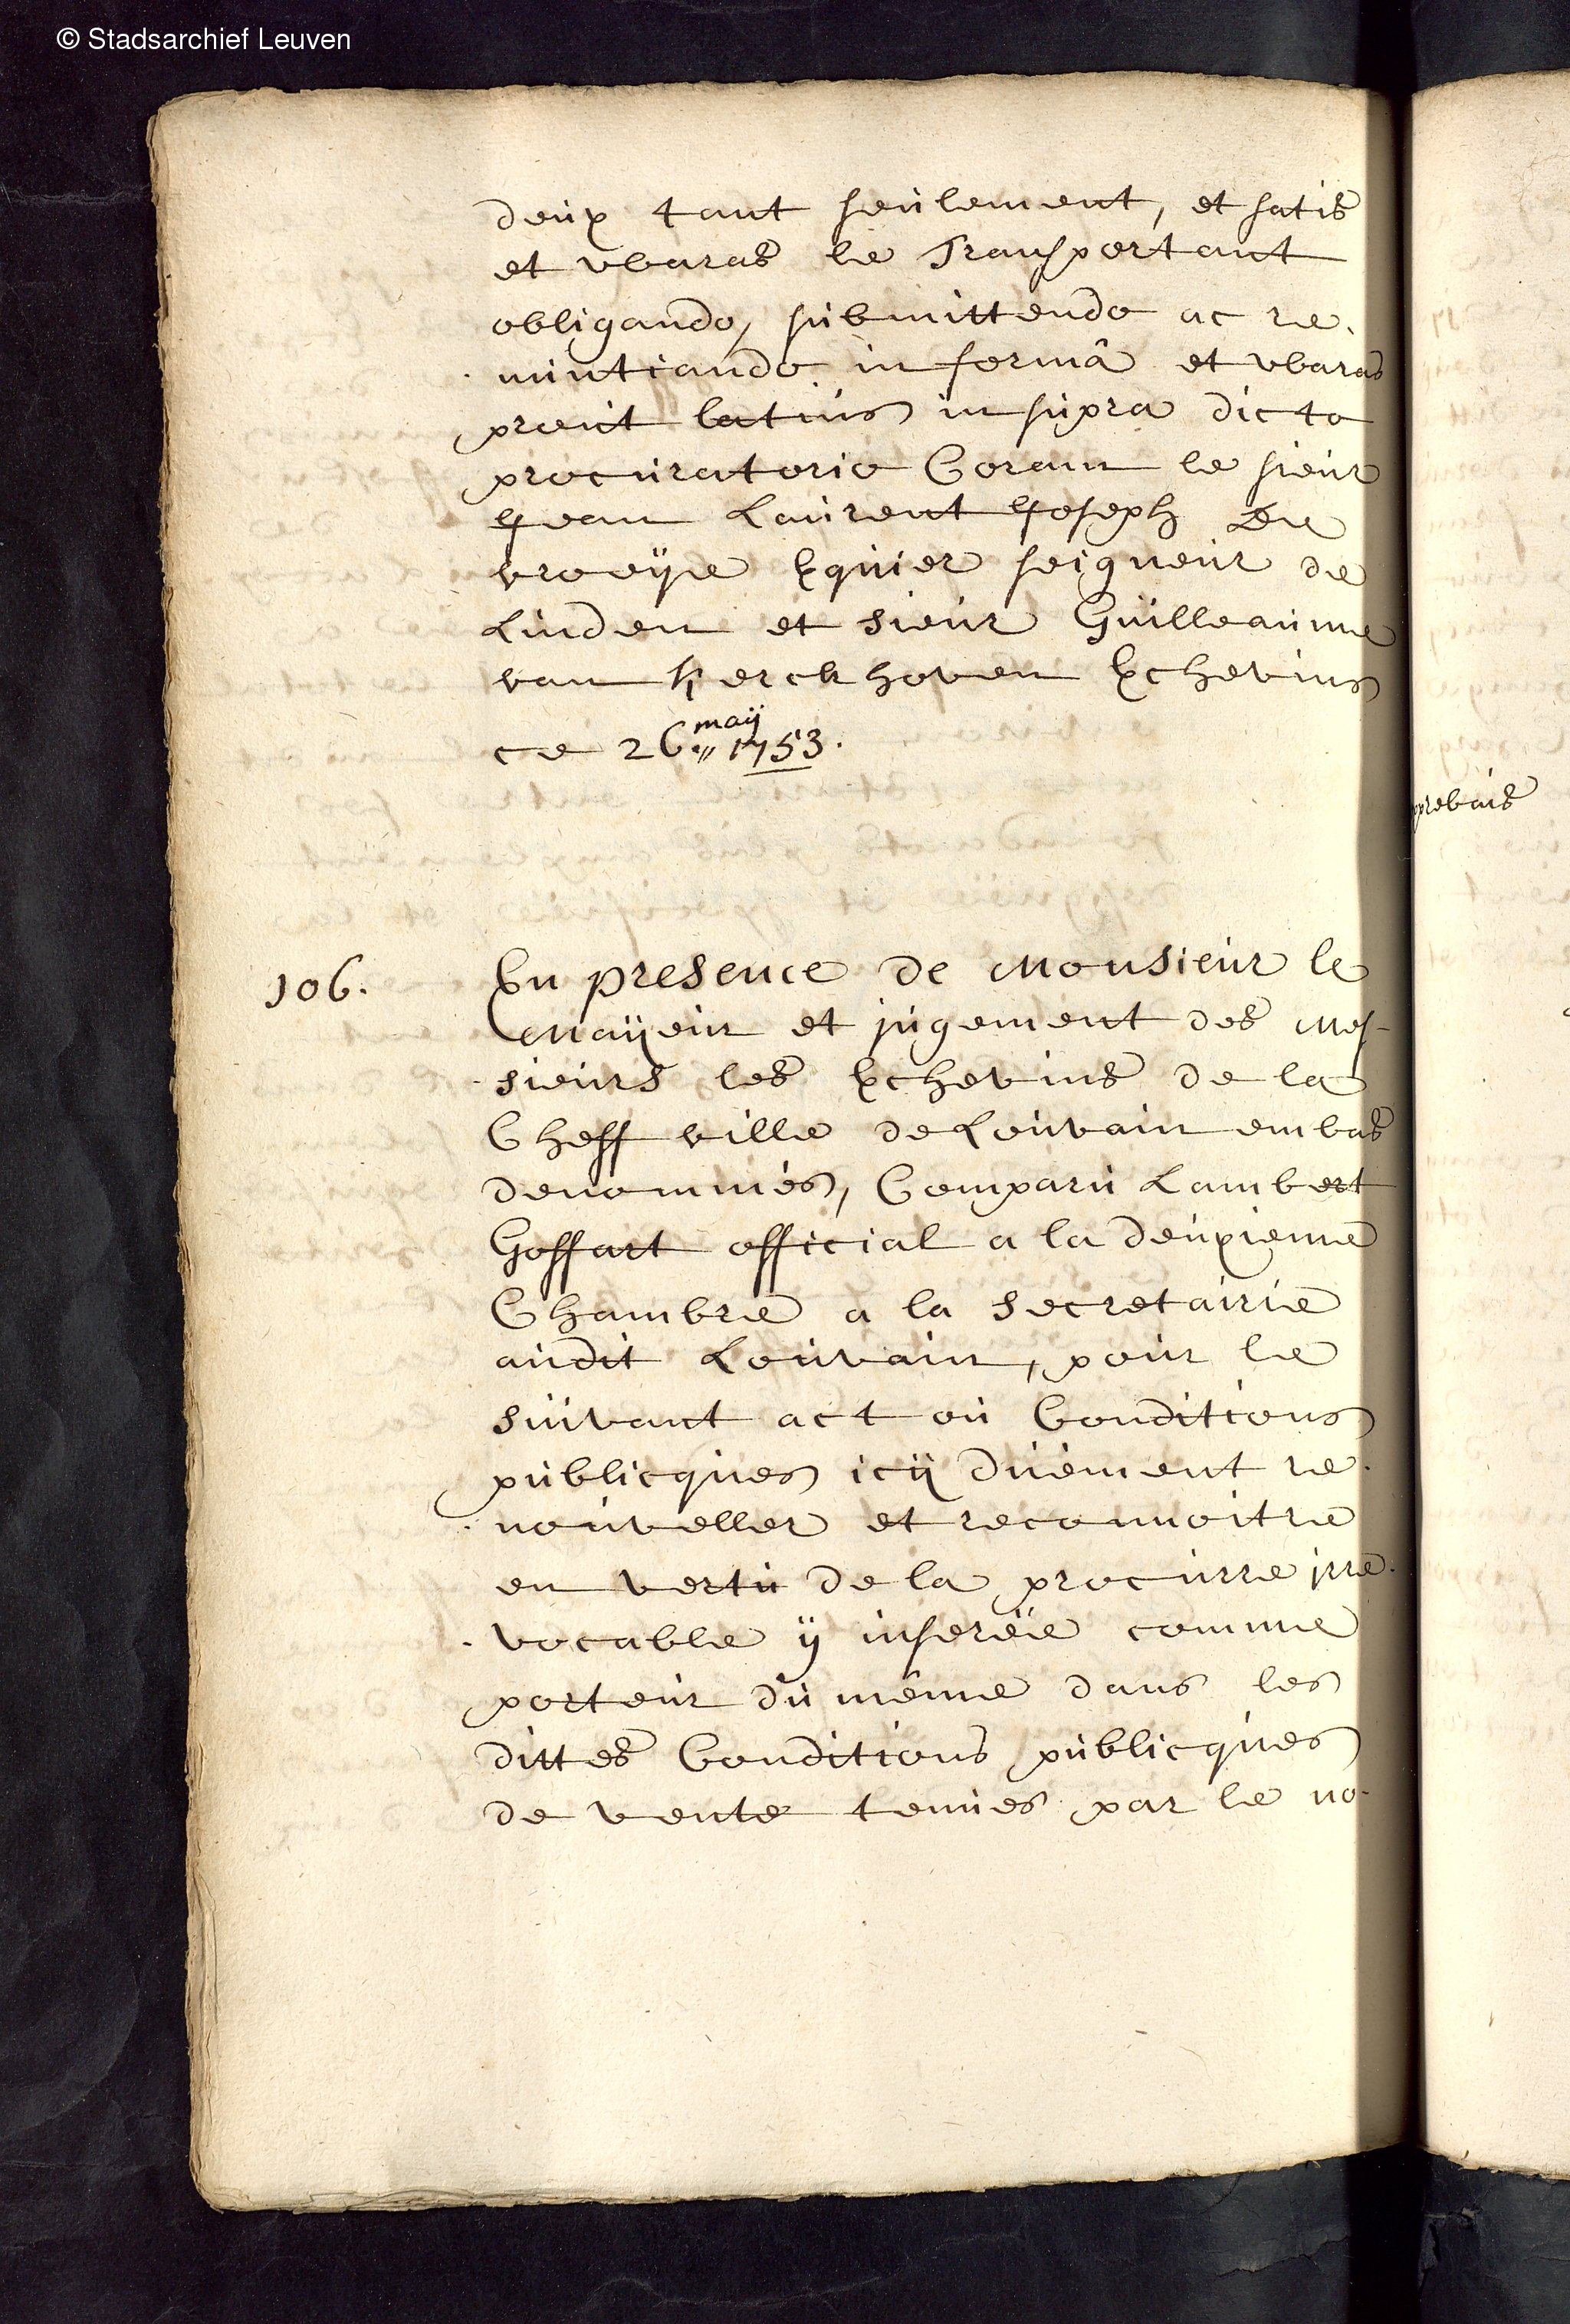 © Stadsarchief Leuven
deux tant seulement, et satis
et vbaras le Transportant
obligando, submittendo ac re.
nuntiando in formâ et vbaras
prout latius in supra dicto
procuratorio Coram le sieur
Jean Laurent Joseph De
vrooÿe Equier seigneur de
Linden et sieur Guilleaume
van Kerckhoven Echevins
ce 26.,, maÿ 1753.
106.
En presence de Monsieur le
Maÿeur et jugement des Mes-
sieurs les Echevins de la
Cheff ville de Louvain embas
denommés, Comparu Lambert
Goffart official a la deuxieme
Chambre a la Secretairie
audit Louvain, pour le
suivant act ou Conditions
publicques icÿ duëment re.
nouveller et reconnoitre
en vertu de la procurre irre.
vocable ÿ inserëe comme
porteur du même dans les
dittes Conditions publicques
de vente tenues par le no-
prebais